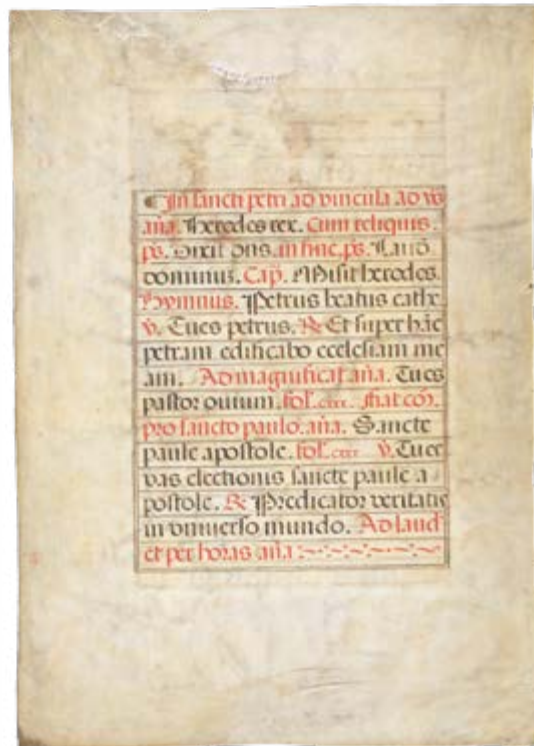 ¶ In sancti petri ad vincula ad vs̄
aña. Herodes rex. Cum reliquis.
ps. Dixit dñs. in fine. ps. Laud̄
dominus. Cap̄. Misit herodes.
Hymnus. Petrus beatus cathe
v̄. Tu es petrus. ℟ Et super hāc
petram edificabo ecclesiam me
am. Ad magnificat aña. Tu es
pastor ouium. fol. cxxx. fiat cōō.
pro sancto paulo. aña. Sancte
paule apostole. fol. cxxx v̄. Tu es
vas electionis sancte paule a
postole. ℟ Predicator veritatis
in vniuerso mundo. Ad laud̄
et per horas aña